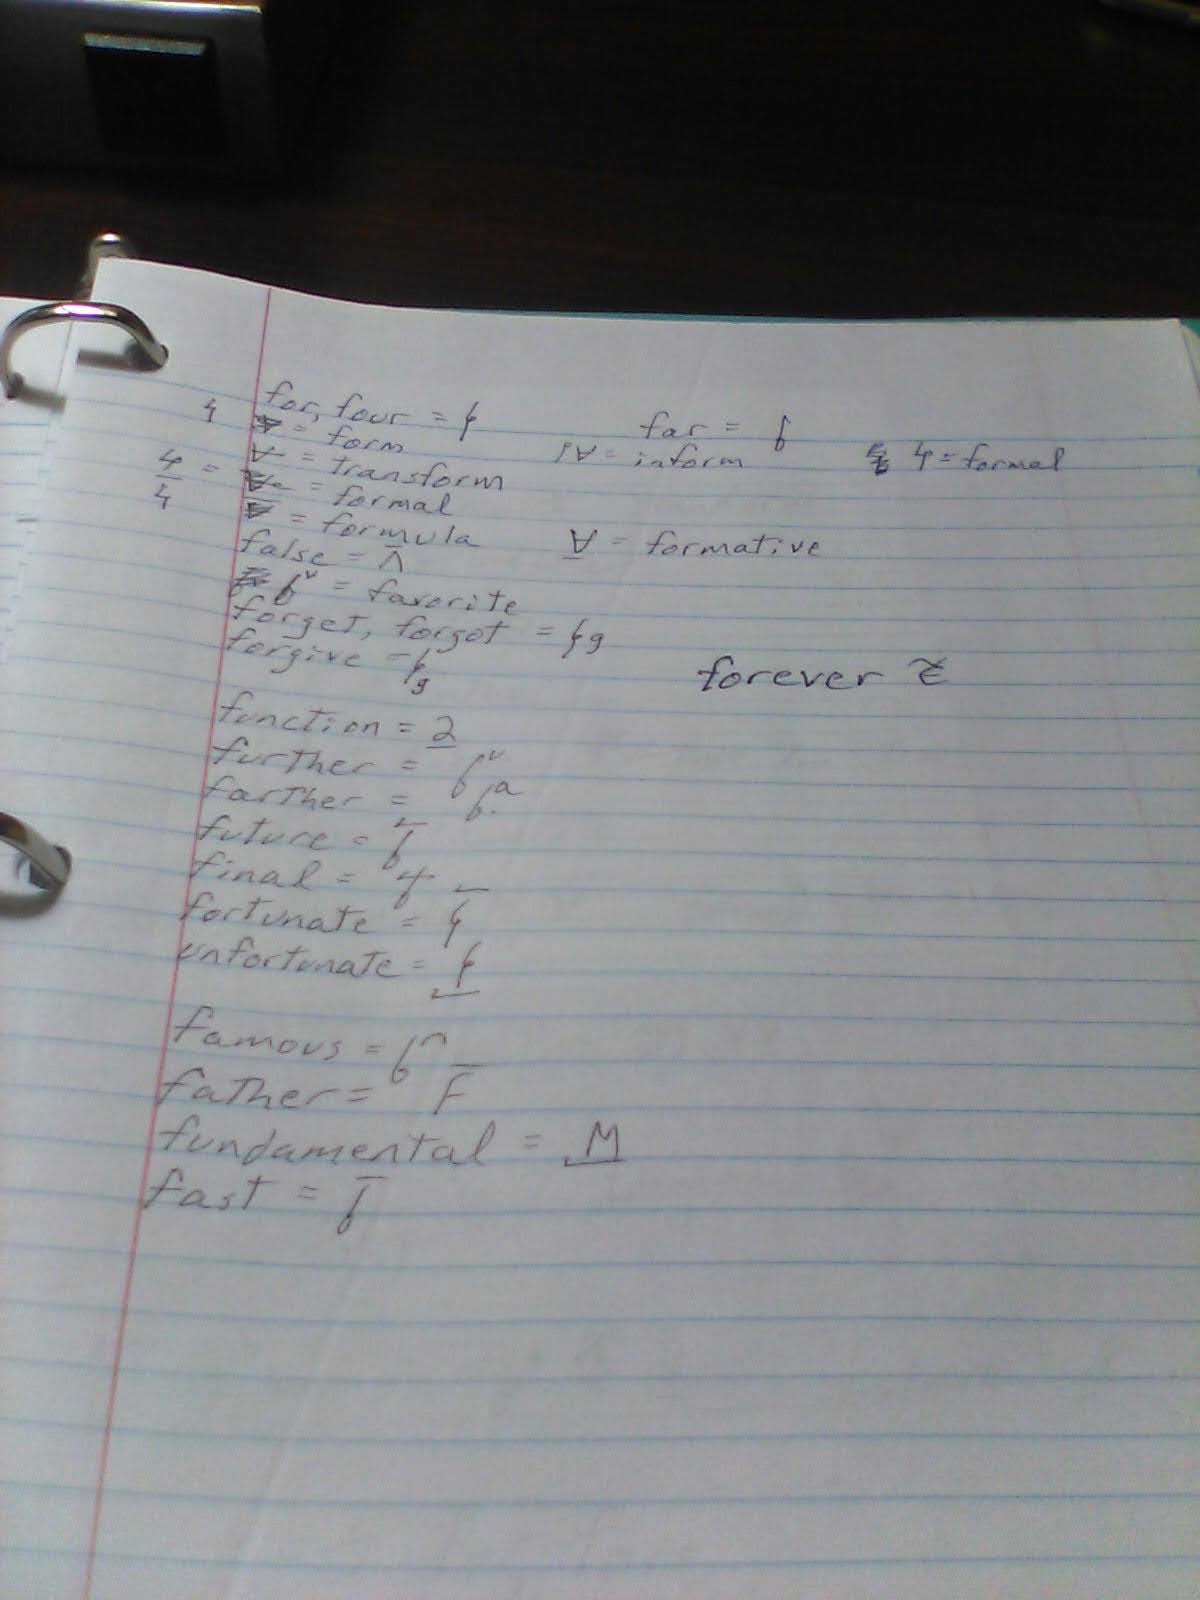 for, four =
far =
= form
= inform
= formal
= transform
= formal
= formula
∀ = formative
false =
= favorite
forget, forgot =
forgive =
forever
function = 2
further =
farther =
future =
final =
fortunate =
unfortunate =
famous =
father = F
fundamental = M
fast =